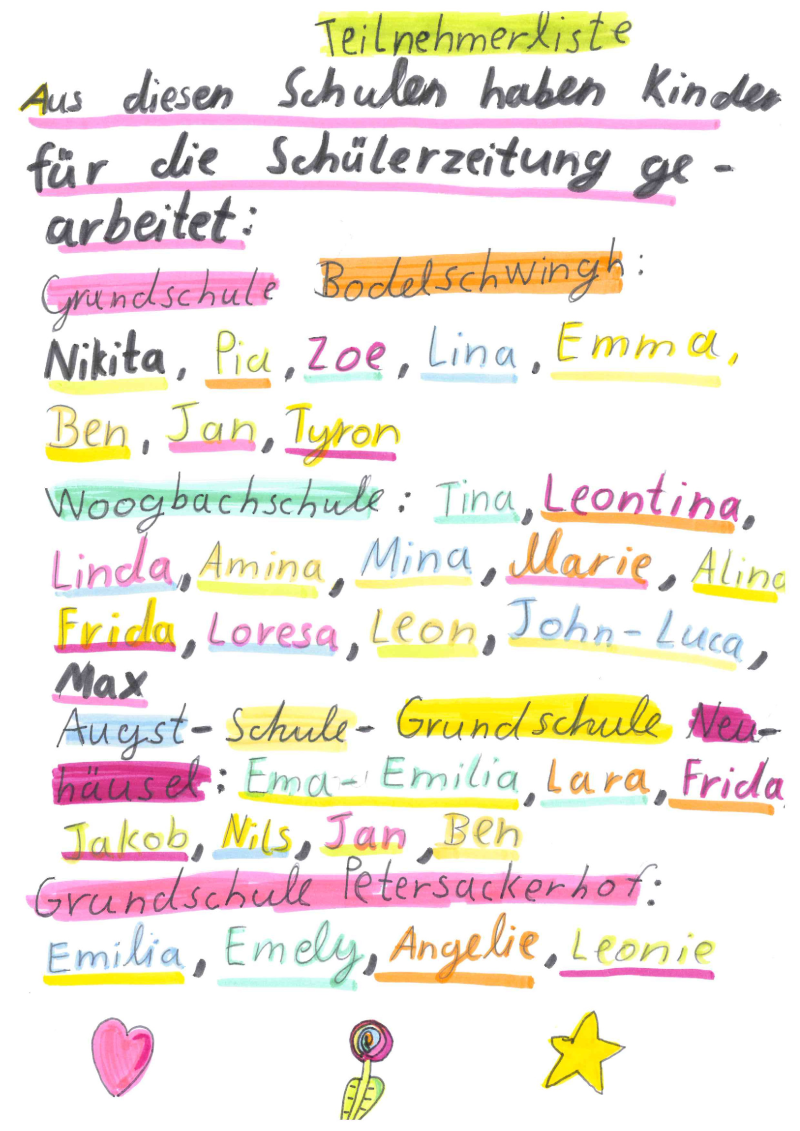 Teilnehmerliste
Aus diesen Schulen haben Kinder
für die Schülerzeitung ge-
arbeitet:
Grundschule Bodelschwingh:
Nikita, Pia, Zoe, Lina, Emma,
Ben, Jan, Tyron
Woogbachschule: Tina, Leontina,
Linda, Amina, Mina, Marie, Alina
Frida, Loresa, Leon, John-Luca,
Max
Augst-Schule-Grundschule Neu-
häusel: Ema-Emilia, Lara, Frida
Jakob, Nils, Jan, Ben
Grundschule Petersackerhof:
Emilia, Emely, Angelie, Leonie